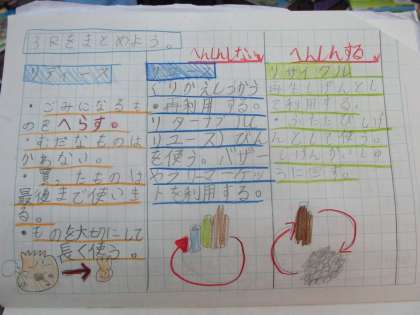 3Rをまとめよう。
リデュース
・ごみになるも
のをへらす。
・むだなものは
かわない。
・買ったものは
最後まで使いき
る。
・ものを大切にして
長く使う。
へんしんしない
くりかえしつかう
・再利用する。
リターナブル
(リユース)びん
を使う。バザー
やフリーマーケッ
トを利用する。
へんしんする
リサイクル
再生しげんとし
て利用する。
・ふたたびしげ
んとして使う。